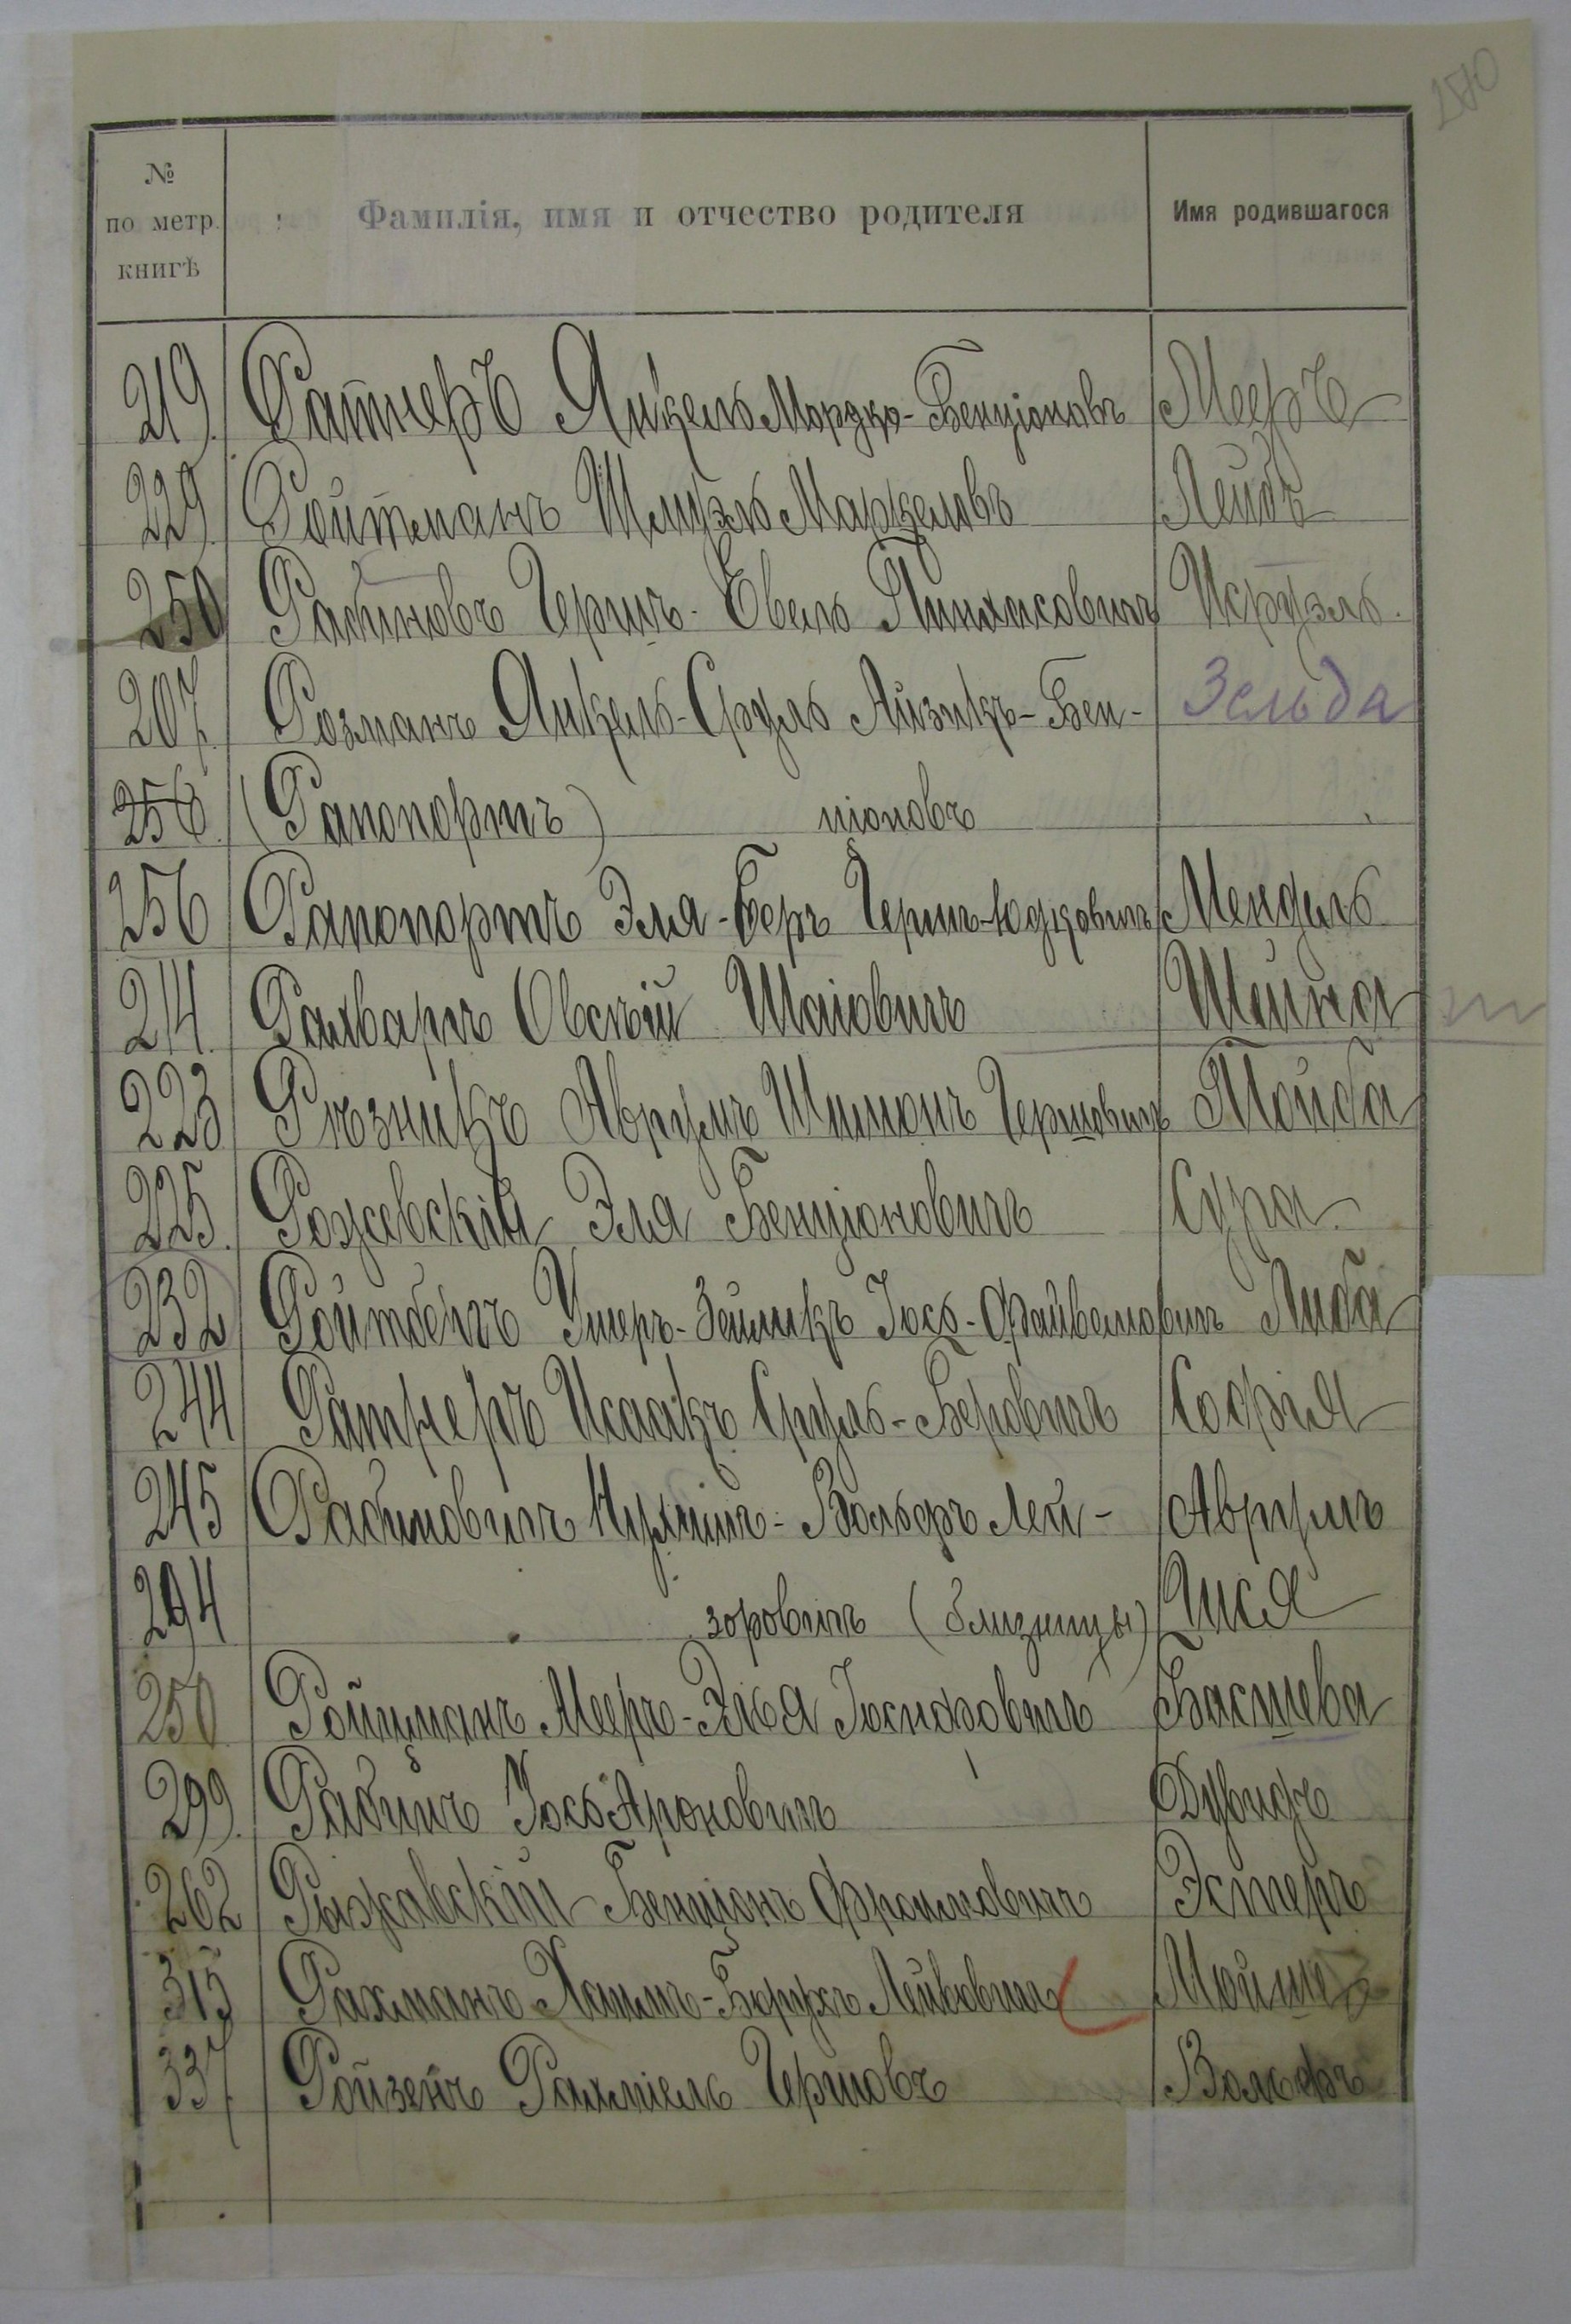 270
№ по метр. книгѣ
Фамилія, имя и отчество родителя
Имя родившагося
219. Ратнеръ Янкель Мордко-Бенціоновъ Мееръ
229. Ройтманъ Шмуль Маркеловъ Лейбъ
250 Рабиновъ Гершъ-Евель Пинхасовичъ Исруэль.
207. Розманъ Янкель-Сруль Айзикъ-Бен- Зельда
256. (Рапопортъ) ціоновъ
256 Рапопортъ Эля-Беръ Гершъ-Юдковичъ Мендель
214. Рахваргъ Овсѣй Шаіовичъ Шейна
223 Рѣзникъ Аврумъ Шимонъ Гершовичъ Тойба
225. Рожевскій Эля Бенціоновичъ Сура
232 Ройтбергъ Ушеръ-Зейликъ Іось-Файвелевичъ Либа
244 Ратнеръ Исаакъ Сруль-Беровичъ Софія
245 Рабиновичъ Нухимъ-Вольфъ Лей- Аврумъ
294 зоровичъ (близнецы) Гися
250 Ройцманъ Мееръ-Элья Іосифовичъ Басшева
299. Рабинъ Іось Ароновичъ Дувидъ
262 Рыжавскій Бенціонъ Фроимовичъ Эстеръ
315 Рахманъ Хаимъ-Борухъ Лейбовичъ Мойше
337. Ройзенъ Рахміель Гершовъ Вольфъ